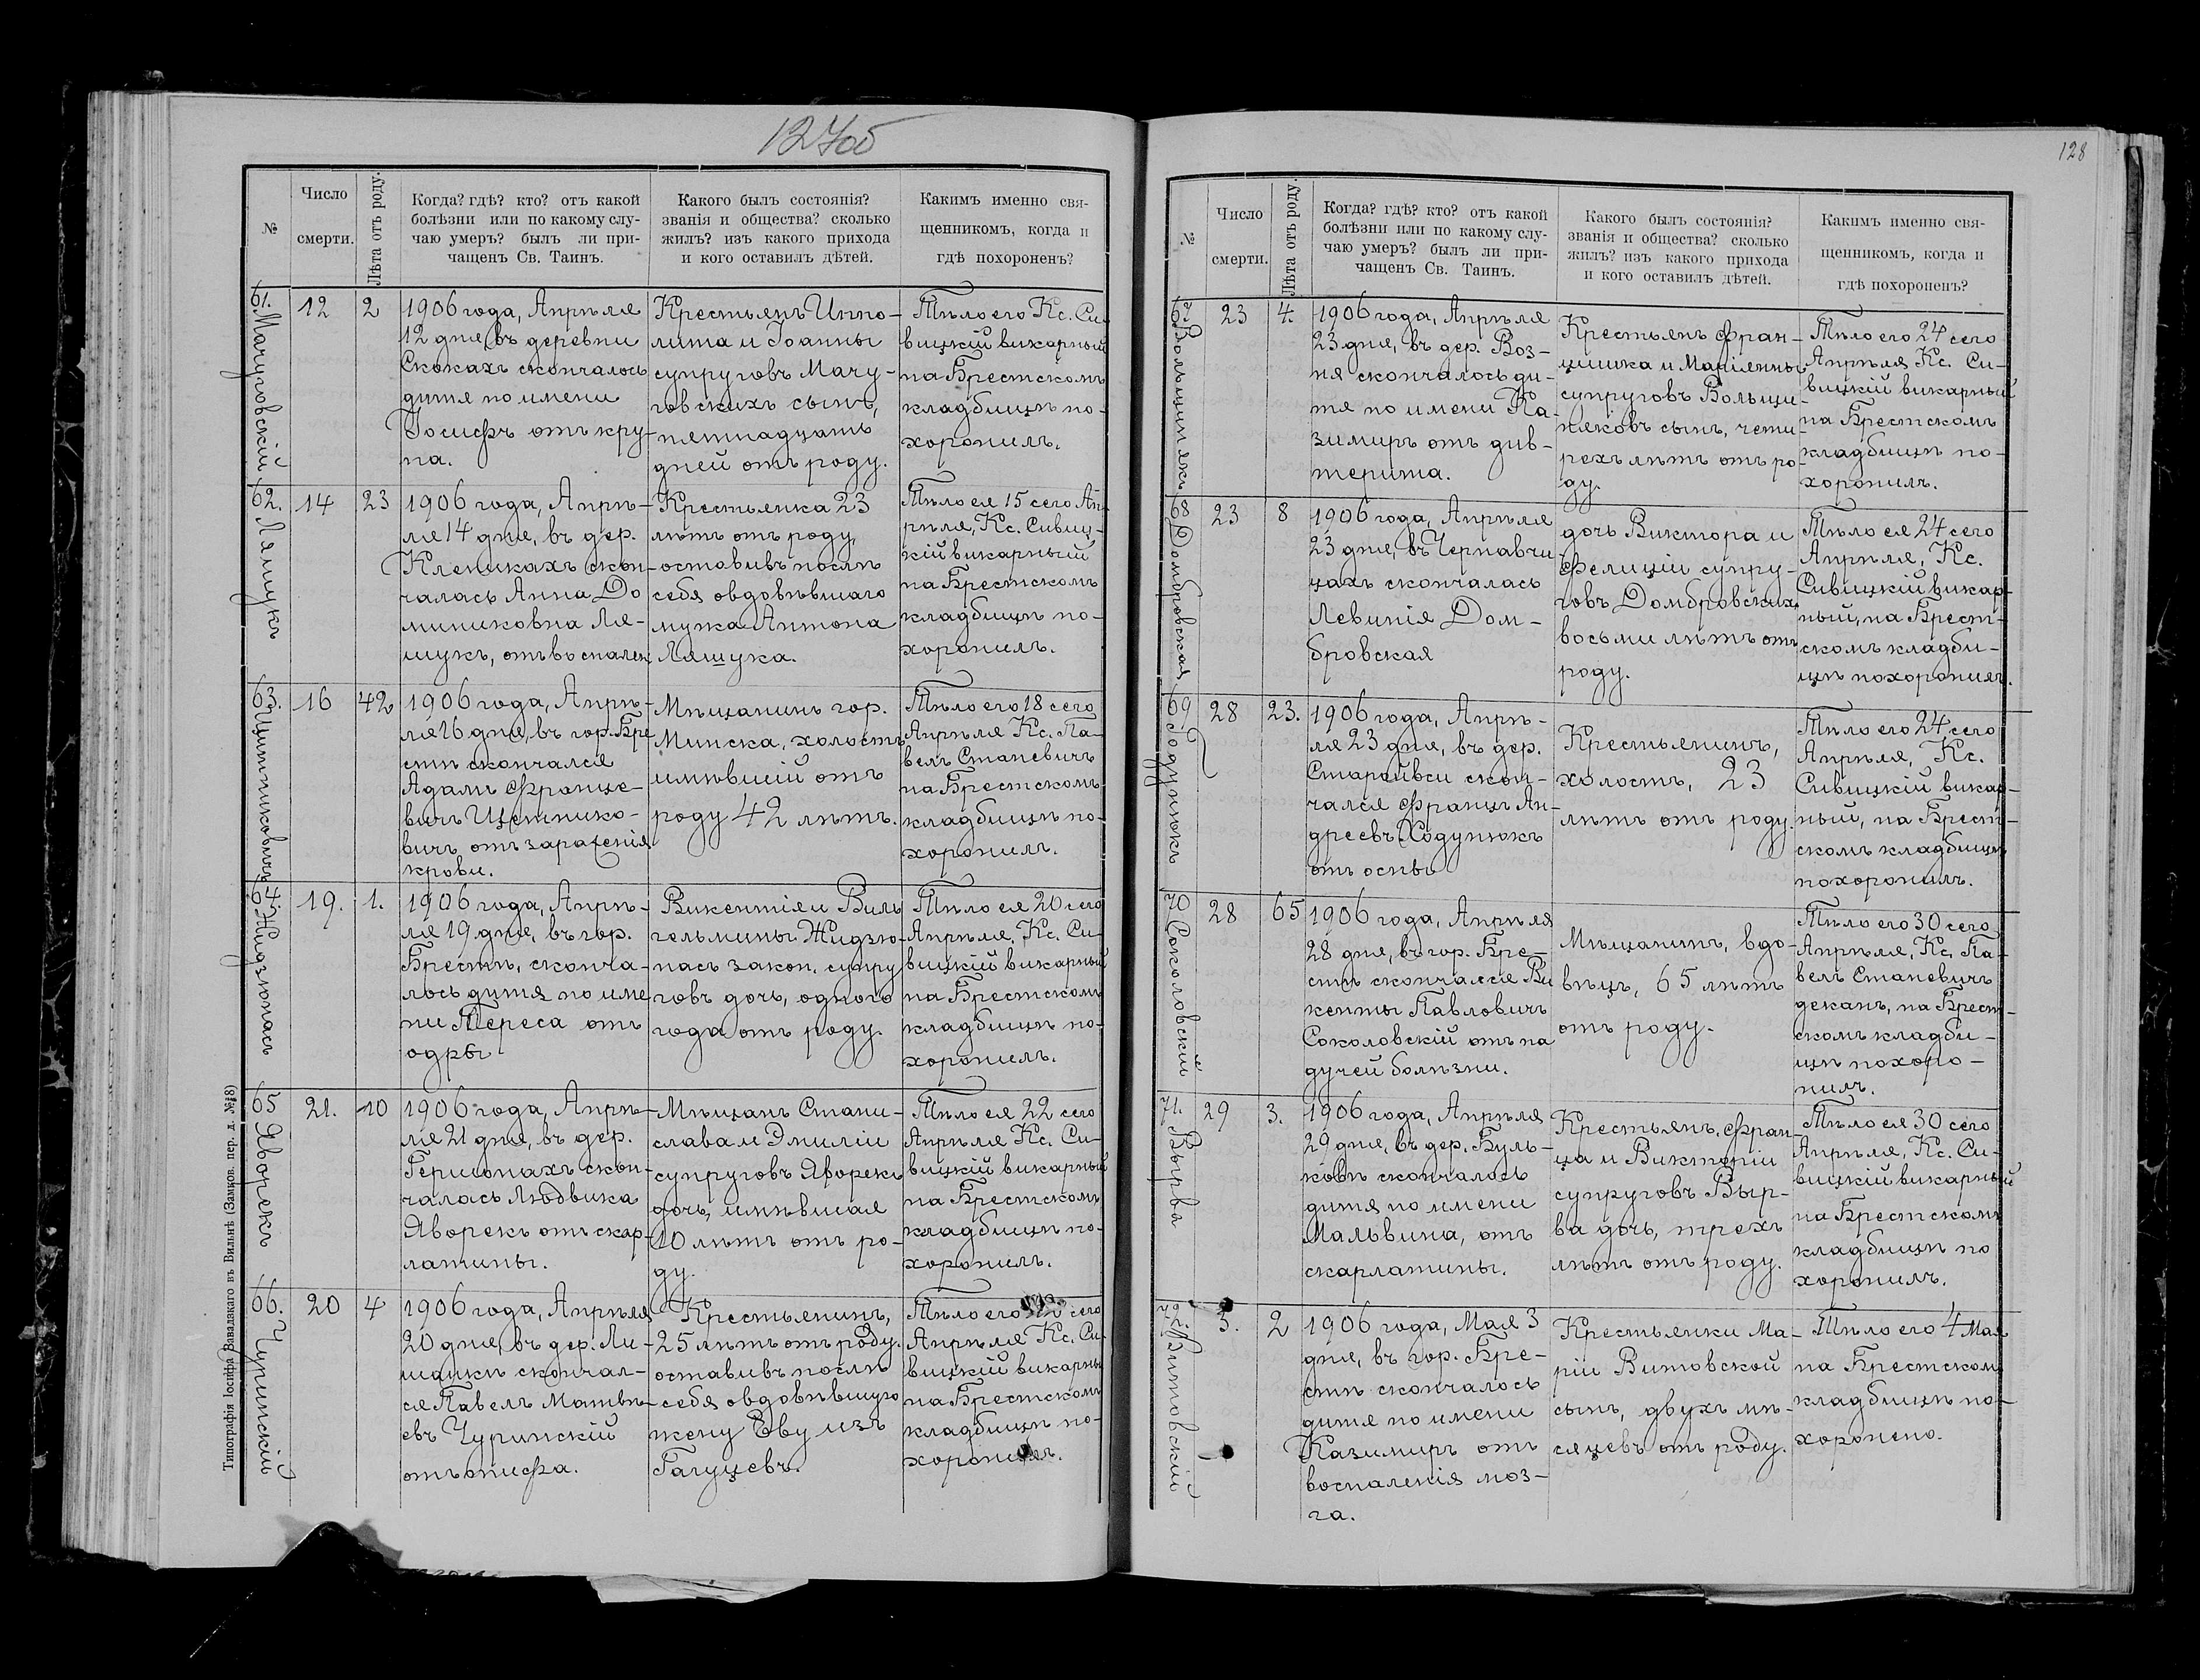 127об
№
Число
смерти.
Лѣта отъ роду.
Когда? гдѣ? кто? отъ какой
болѣзни или по какому слу-
чаю умеръ? былъ ли при-
чащенъ Св. Таинъ.
Какого былъ состоянія?
званія и общества? сколько
жилъ? изъ какого прихода
и кого оставилъ дѣтей.
Какимъ именно свя-
щенникомъ, когда и
гдѣ похороненъ?
61.
Мачуговскій
12
2
1906 года, Апрѣля
12 дня, въ деревни
Скокахъ скончалось
дитя по имени
Іосифъ отъ кру-
па.
Крестьянъ Иппо-
лита и Іоанны
супруговъ Мачу-
говскихъ сынъ,
пятнадцать
дней отъ роду.
Тѣло его Кс. Си-
вицкій викарный
на Брестскомъ
кладбищѣ по-
хоронилъ.
62.
Ляшукъ
14
23
1906 года, Апрѣ-
ля 14 дня, въ дер.
Клепикахъ скон-
чалась Анна До
миниковна Ля-
шукъ, отъ воспален
Крестьянка 23
лѣтъ отъ роду,
оставивъ послѣ
себя овдовѣвшаго
мужа Антона
Ляшука.
Тѣло ея 15 сего Ап-
рѣля, Кс. Сивиц-
кій викарный
на Брестскомъ
кладбищѣ по-
хоронилъ.
63.
Щитниковичъ
16
42
1906 года, Апрѣ-
ля 16 дня, въ гор. Бре
стѣ скончался
Адамъ Францо-
вичъ Щетнико-
вичъ отъ зараженія
крови.
Мѣщанинъ гор.
Минска, холостъ
имѣвшій отъ
роду 42 лѣтъ.
Тѣло его 18 сего
Апрѣля Кс. Па-
велъ Станевичъ
на Брестскомъ
кладбищѣ по-
хоронилъ.
64.
Жидзюнасъ
19.
1.
1906 года, Апрѣ-
ля 19 дня, въ гор.
Брестѣ, сконча-
лось дитя по име
ни Тереса отъ
одры
Викентія и Виль
гельмины Жидзю-
насъ закон. супру
говъ дочь, одного
года отъ роду.
Тѣло ея 20 сего
Апрѣля, Кс. Си-
вицкій викарный
на Брестскомъ
кладбищѣ по-
хоронилъ.
65
Яворекъ
21.
10
1906 года, Апрѣ-
ля 21 дня, въ дер.
Гершонахъ скон-
чалась Людвика
Яворекъ отъ скар-
латины.
Мѣщанъ Стани-
слава и Эмиліи
супруговъ Яворекъ
дочь, имѣвшая
10 лѣтъ отъ ро-
ду.
Тѣло ея 22 сего
Апрѣля Кс. Си-
вицкій викарный
на Брестскомъ
кладбищѣ по-
хоронилъ.
66.
Чуринскій
20
4
1906 года, Апрѣля
20 дня, въ дер. Ли-
шанкѣ скончал-
ся Павелъ Матвѣ-
евъ Чуринскій
отъ тифа.
Крестьянинъ,
25 лѣтъ отъ роду.
оставивъ послѣ
себя овдовѣвшую
жену Еву изъ
Гагуцевъ.
Тѣло его сего
Апрѣля Кс. Си-
вицкій викарный
на Брестскомъ
кладбищѣ по-
хоронилъ.
Типографія Іосифа Завадзкаго въ Вильнѣ (Замков. пер. д. № 8)
128
№
Число
смерти.
Лѣта отъ роду.
Когда? гдѣ? кто? отъ какой
болѣзни или по какому слу-
чаю умеръ? былъ ли при-
чащенъ Св. Таинъ.
Какого былъ состоянія?
званія и общества? сколько
жилъ? изъ какого прихода
и кого оставилъ дѣтей.
Какимъ именно свя-
щенникомъ, когда и
гдѣ похороненъ?
67
Вольщинякъ
23
4.
1906 года, Апрѣля
23 дня, въ дер. Воз-
ня скончалось ди-
тя по имени Ка-
зимиръ отъ диф-
терита.
Крестьянъ Фран-
цишка и Маріянны
супруговъ Вольщи-
няковъ сынъ, четы-
рехъ лѣтъ отъ ро-
ду.
Тѣло его 24 сего
Апрѣля Кс. Си-
вицкій викарный
на Брестскомъ
кладбищѣ по-
хоронилъ.
68
Домбровская
23
8
1906 года, Апрѣля
23 дня, въ Чернавчи
цахъ скончалась
Левинія Дом-
бровская
дочь Виктора и
Фелиціи супру-
говъ Домбровскихъ
восьми лѣтъ отъ
роду.
Тѣло ея 24 сего
Апрѣля, Кс.
Сивицкій викар-
ный, на Брест-
скомъ кладби-
щѣ похоронилъ.
69
Ходунюкъ
28
23.
1906 года, Апрѣ-
ля 23 дня, въ дер.
Старойвси скон-
чался Францъ Ан-
дреевъ Ходунюкъ
отъ оспы
Крестьянинъ,
холостъ, 23
лѣтъ отъ роду.
Тѣло его 24 сего
Апрѣля, Кс.
Сивицкій викар-
ный, на Брест-
скомъ кладбищѣ
похоронилъ.
70
Соколовскій
28
65
1906 года, Апрѣля
28 дня, въ гор. Бре-
стѣ скончался Ви
кенты Павловичъ
Соколовскій отъ па
дучей болѣзни.
Мѣщанинъ, вдо-
вецъ, 65 лѣтъ
отъ роду.
Тѣло его 30 сего
Апрѣля, Кс. Па-
велъ Станевичъ
деканъ, на Брест-
скомъ кладби-
щѣ похоро-
нилъ.
71.
Вырва
29
3.
1906 года, Апрѣля
29 дня, въ дер. Буль-
ковѣ скончалось
дитя по имени
Мальвина, отъ
скарлатины.
Крестьянъ, Фран
ца и Викторіи
супруговъ Выр-
ва дочь, трехъ
лѣтъ отъ роду.
Тѣло ея 30 сего
Апрѣля, Кс. Си-
вицкій викарный
на Брестскомъ
кладбищѣ по
хоронилъ.
72.
Витовскій
3.
2
1906 года, Мая 3
дня, въ гор. Бре-
стѣ скончалось
дитя по имени
Казимиръ отъ
воспаленія моз-
га.
Крестьянки Ма-
ріи Витовской
сынъ, двухъ мѣ-
сяцевъ отъ роду.
Тѣло его 4 Мая
на Брестскомъ
кладбищѣ по-
хоронено.